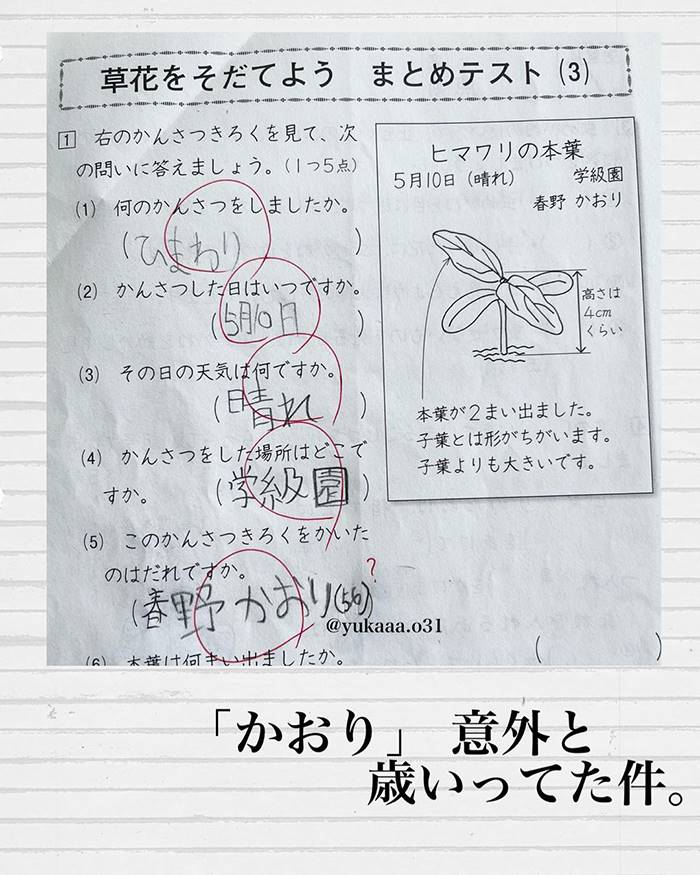 草花をそだてよう まとめテスト (3)
1 右のかんさつきろくを見て、次
の問いに答えましょう。(1つ5点)
(1) 何のかんさつをしましたか。
(ひまわり)
(2) かんさつした日はいつですか。
(5月10日)
(3) その日の天気は何ですか。
(晴れ)
(4) かんさつをした場所はどこで
すか。 (学級園)
(5) このかんさつきろくをかいた
のはだれですか。
(春野 かおり(56))
?
@yukaaa.o31
(6) 本葉は何まい出ましたか。
( )
ヒマワリの本葉
5月10日 (晴れ) 学級園
春野 かおり
高さは
4cm
くらい
本葉が2まい出ました。
子葉とは形がちがいます。
子葉よりも大きいです。
「かおり」 意外と
歳いってた件。